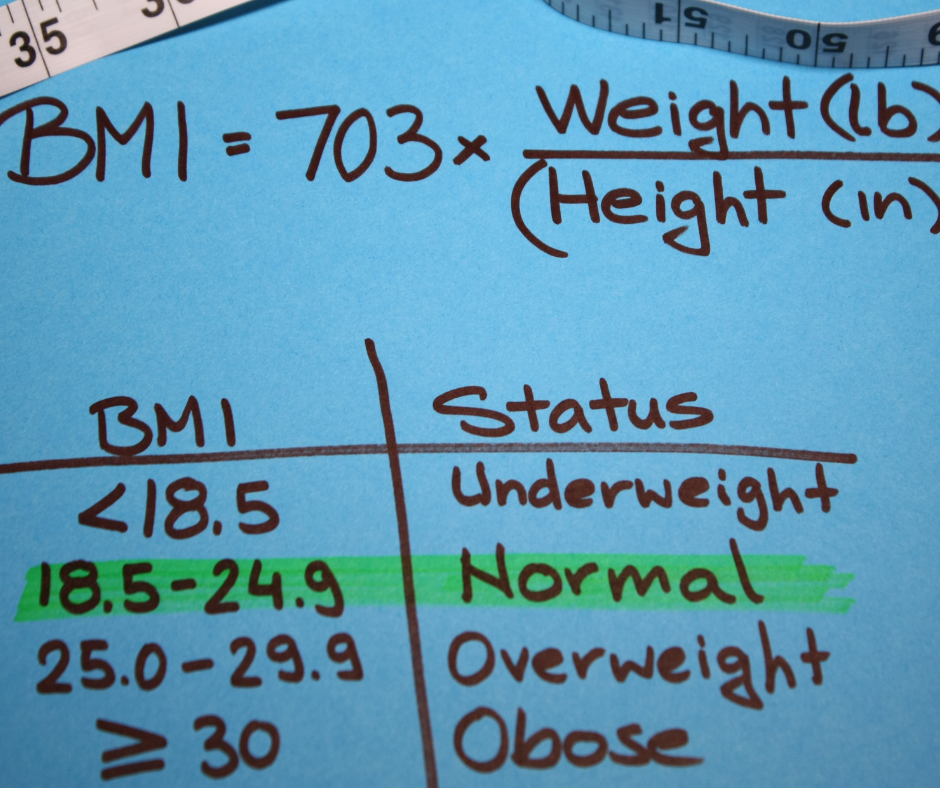 35 3
51 50 9
BMI = 703 × Weight (lb)
(Height (in)
BMI Status
<18.5 Underweight
18.5-24.9 Normal
25.0-29.9 Overweight
≥ 30 Obose